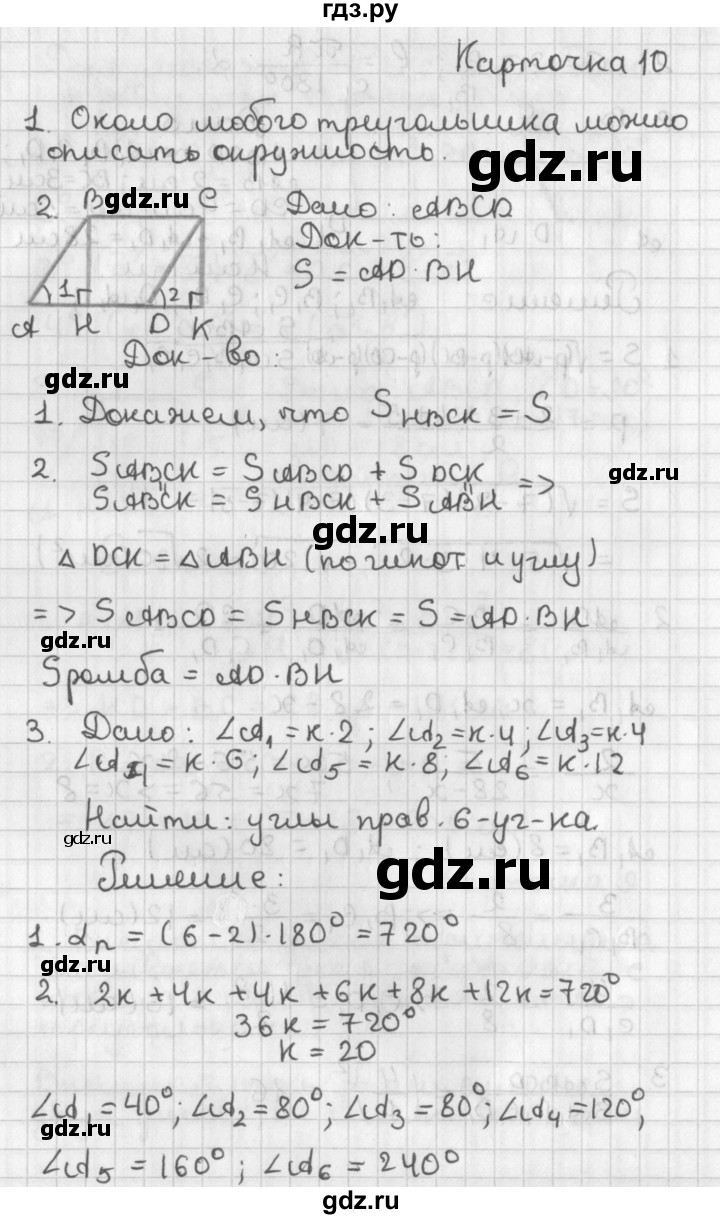 гдз.ру
Карточка 10
1. Около любого треугольника можно
описать окружность.
gdz.ru
2. B gdz.ru C Дано: ABCD
Док-ть:
S = AD · BH
1 2
A H D K
Док-во:
gdz.ru
1. Докажем, что S HBCK = S
2. S ABCK = S ABCD + S DCK
S ABCK = S HBCK + S ABH =>
gdz.ru
gdz.ru
△ DCK = △ ABH (по гипот и углу)
=> S ABCD = S HBCK = S = AD · BH
gdz.ru
Sромба = AD · BH
3. Дано: ∠α₁ = к·2; ∠α₂ = к·4; ∠α₃ = к·4
∠α₄ = к·6; ∠α₅ = к·8; ∠α₆ = к·12
Найти: углы прав. 6-уг-ка.
gdz.ru
Решение:
gdz.ru
1. αₙ = (6-2)·180° = 720°
gdz.ru
2. 2к + 4к + 4к + 6к + 8к + 12к = 720°
36к = 720°
gdz.ru
к = 20
∠α₁ = 40°; ∠α₂ = 80°; ∠α₃ = 80°; ∠α₄ = 120°;
gdz.ru
∠α₅ = 160°; ∠α₆ = 240°
gdz.ru